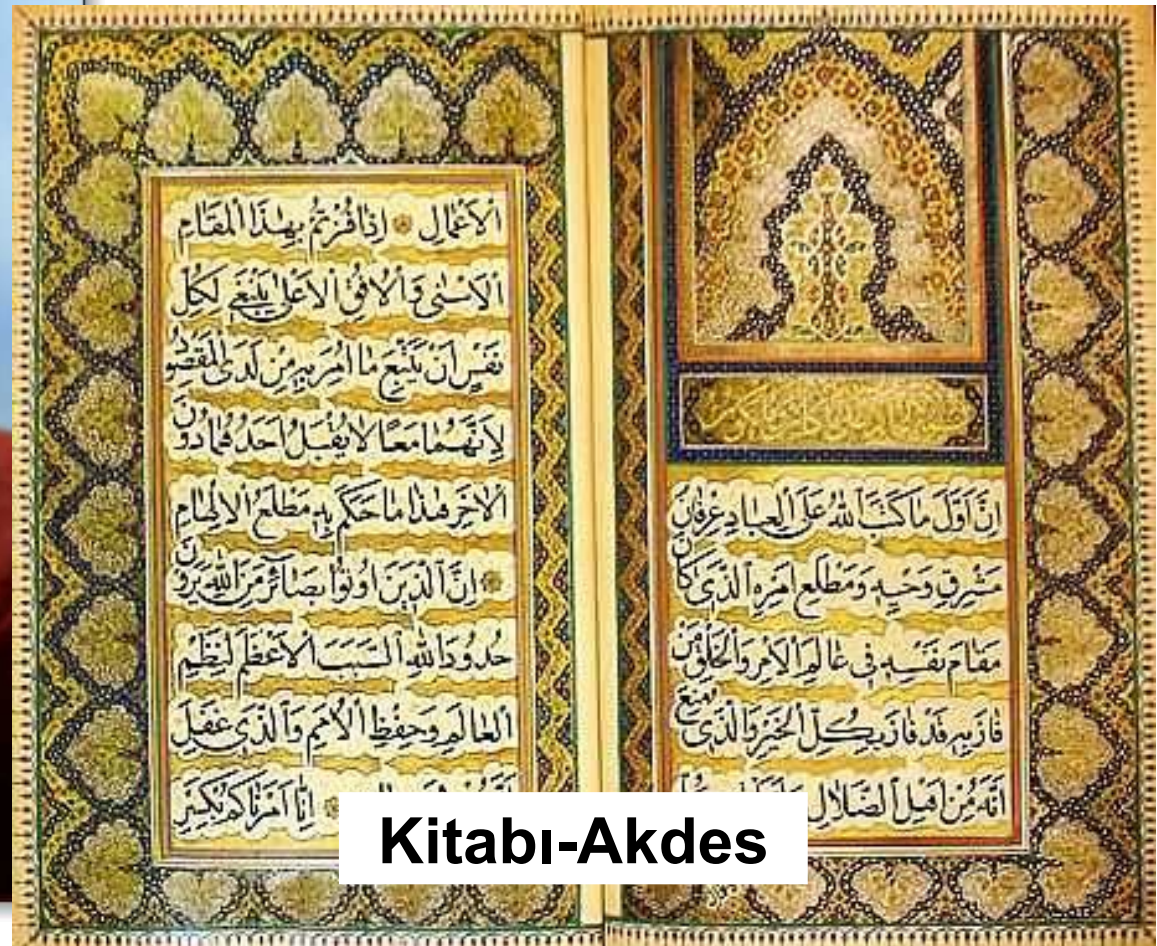 اِنَّ اَوَّلَ مَا كَتَبَ اللهُ عَلَى العِبَادِ عِرْفَانُ
مَشْرِقِ وَحْيِهِ وَمَطْلَعِ اَمْرِهِ الَّذِى كَانَ
مَقَامَ نَفْسِهِ فِى عَالَمِ الاَمْرِ وَالخَلْقِ مَنْ
فَازَ بِهِ قَدْ فَازَ بِكُلِّ الخَيْرِ وَالَّذِى مُنِعَ
اِنَّهُ مِنْ اَهْلِ الضَّلَالِ
الاَعْمَالِ ۞ اِذَا فُزْتُمْ بِهٰذَا المَقَامِ
الاَسْنٰى وَالاُفُقِ الاَعْلٰى يَنْبَغِى لِكُلِّ
نَفْسٍ اَنْ يَتَّبِعَ مَا اُمِرَ بِهِ مِنْ لَدَى المَقْصُودِ
لِاَنَّهُمَا مَعًا لَا يُقْبَلُ اَحَدُهُمَا دُونَ
الاٰخَرِ هٰذَا مَا حَكَمَ بِهِ مَطْلَعُ الاِلْهَامِ
۞ اِنَّ الَّذِينَ اُوتُوا بَصَائِرَ مِنَ اللهِ يَرَوْنَ
حُدُودَ اللهِ السَّبَبَ الاَعْظَمَ لِنَظْمِ
العَالَمِ وَحِفْظِ الاُمَمِ وَالَّذِى غَفَلَ
۞ اِنَّا اَمَرْنَاكُمْ بِكَسْرِ
Kitabı-Akdes